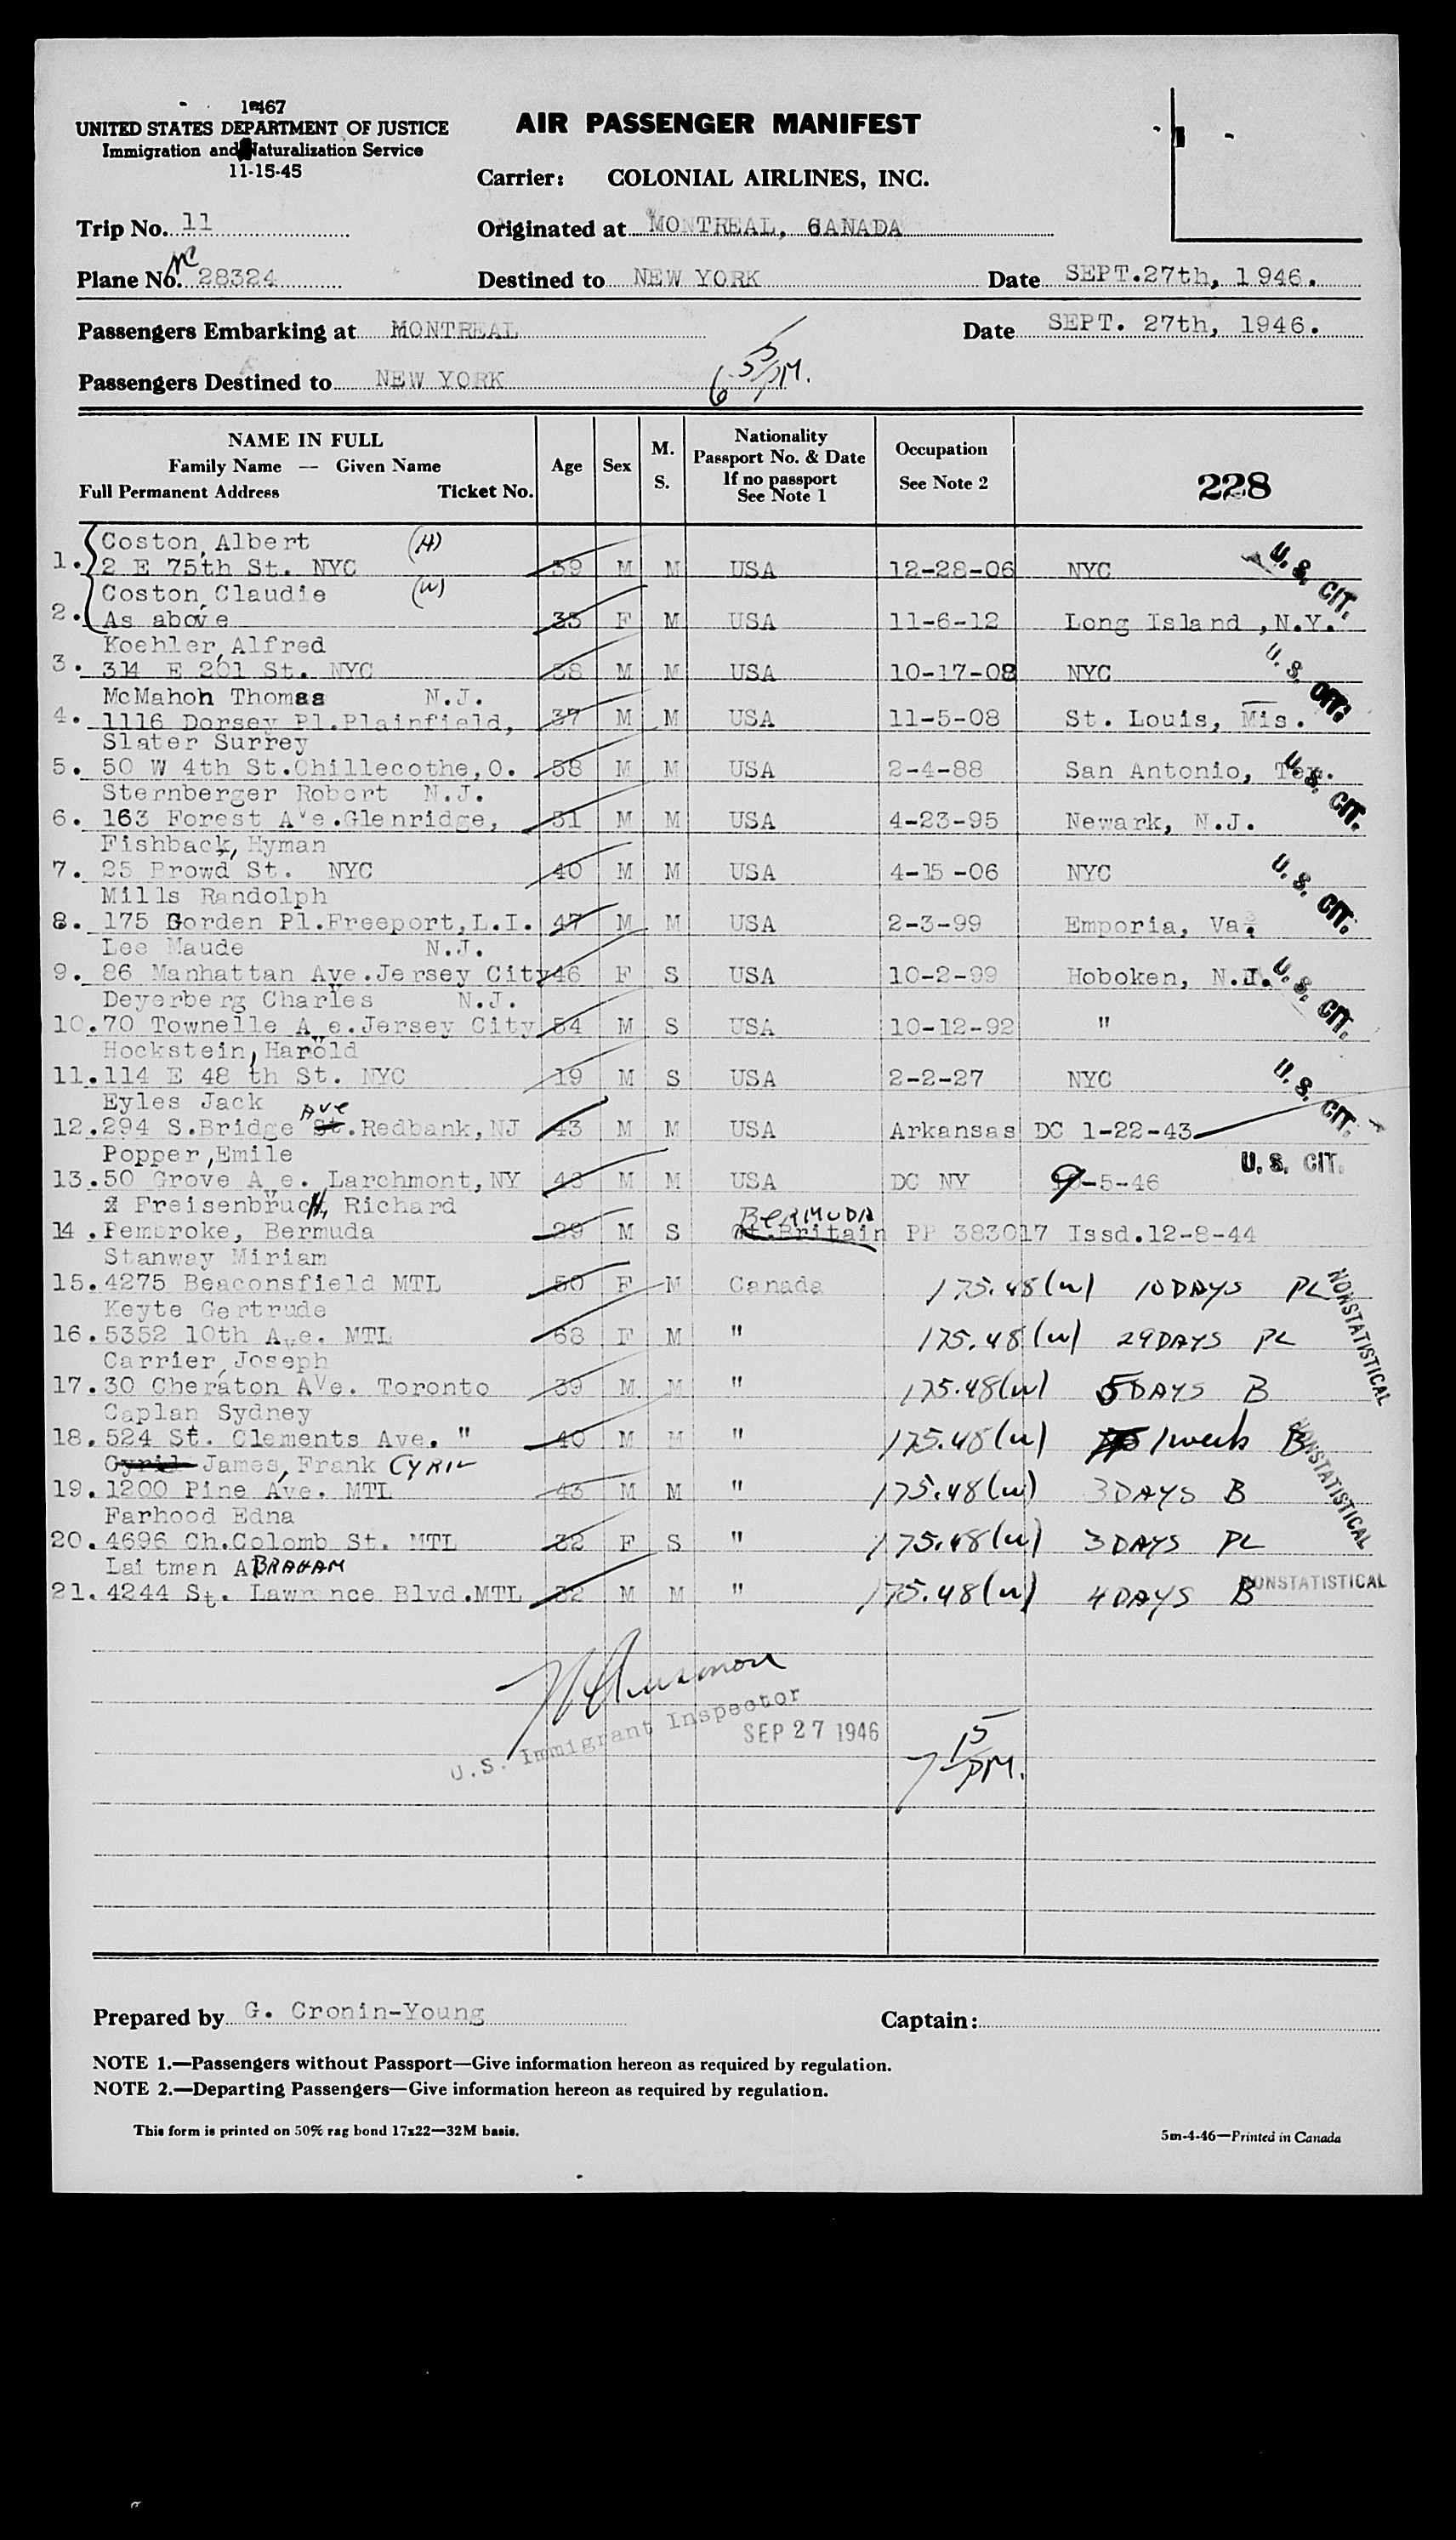 1467
UNITED STATES DEPARTMENT OF JUSTICE
Immigration and Naturalization Service
11-15-45
AIR PASSENGER MANIFEST
Carrier: COLONIAL AIRLINES, INC.
Trip No. 11
Originated at MONTREAL, CANADA
Plane No. NC 28324
Destined to NEW YORK
Date SEPT.27th, 1946.
Passengers Embarking at MONTREAL
Date SEPT. 27th, 1946.
Passengers Destined to NEW YORK
PM.
NAME IN FULL
Family Name — Given Name
Full Permanent Address Ticket No.
Age
Sex
M. S.
Nationality
Passport No. & Date
If no passport
See Note 1
Occupation
See Note 2
228
Coston, Albert (H)
1. 2 E 75th St. NYC 39 M M USA 12-28-06 NYC U. S. CIT.
Coston, Claudie (W)
2. As above 33 F M USA 11-6-12 Long Island ,N.Y.
Koehler, Alfred
3. 314 E 201 St. NYC 38 M M USA 10-17-08 NYC U. S. CIT.
McMahon Thomas N.J.
4. 1116 Dorsey Pl.Plainfield, 37 M M USA 11-5-08 St. Louis, Mis.
Slater Surrey
5. 50 W 4th St.Chillecothe,O. 58 M M USA 2-4-88 San Antonio, Tex. U. S. CIT.
Sternberger Robert N.J.
6. 163 Forest Ave.Glenridge, 51 M M USA 4-23-95 Newark, N.J.
Fishback, Hyman
7. 25 Browd St. NYC 40 M M USA 4-15 -06 NYC U. S. CIT.
Mills Randolph
8. 175 Gorden Pl.Freeport,L.I. 47 M M USA 2-3-99 Emporia, Va.
Lee Maude N.J.
9. 86 Manhattan Ave.Jersey City 46 F S USA 10-2-99 Hoboken, N.J. U. S. CIT.
Deyerberg Charles N.J.
10. 70 Townelle Ave.Jersey City 54 M S USA 10-12-92 "
Hockstein, Harold
11. 114 E 48 th St. NYC 19 M S USA 2-2-27 NYC U. S. CIT.
Eyles Jack
12. 294 S.Bridge St. Ave .Redbank,NJ 43 M M USA Arkansas DC 1-22-43
Popper ,Emile
13. 50 Grove Ave. Larchmont,NY 43 M M USA DC NY 9-5-46 U. S. CIT.
Freisenbruch, Richard
14 . Pembroke, Bermuda 29 M S Gt.Britain BERMUDA PP 383017 Issd.12-8-44
Stanway Miriam
15. 4275 Beaconsfield MTL 50 F M Canada 175.48(w) 10 DAYS PL NONSTATISTICAL
Keyte Gertrude
16. 5352 10th Ave. MTL 68 F M " 175.48(w) 29 DAYS PL
Carrier, Joseph
17. 30 Cheraton Ave. Toronto 39 M M " 175.48(w) 5 DAYS B
Caplan Sydney
18. 524 St. Clements Ave. " 40 M M " 175.48(w) 1 week B NONSTATISTICAL
Cyril James, Frank CYRIL
19. 1200 Pine Ave. MTL 43 M M " 175.48(w) 3 DAYS B
Farhood Edna
20. 4696 Ch.Colomb St. MTL 32 F S " 175.48(w) 3 DAYS PL
Laitman ABRAHAM
21. 4244 St. Lawrence Blvd.MTL 32 M M " 175.48(w) 4 DAYS B NONSTATISTICAL
U.S. Immigrant Inspector
SEP 27 1946
7 15 PM.
Prepared by G. Cronin-Young
Captain:
NOTE 1.—Passengers without Passport—Give information hereon as required by regulation.
NOTE 2.—Departing Passengers—Give information hereon as required by regulation.
This form is printed on 50% rag bond 17x22—32M basis.
5m-4-46—Printed in Canada